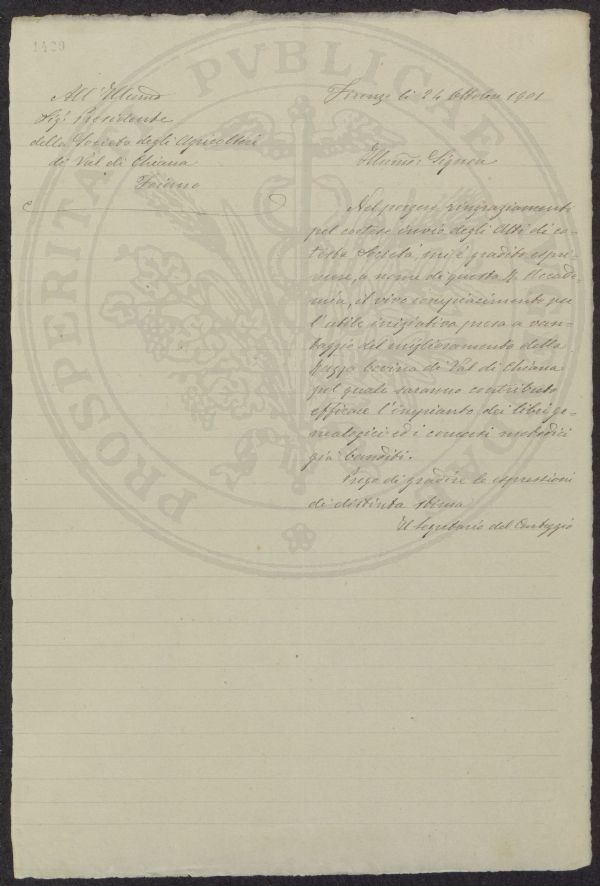 1429
All'Illmo
Sigr Presidente
della Società degli Agricoltori
di Val di Chiana
Foiano
Firenze li 24 Ottobre 1901
Illmo: Signore
Nel porgere ringraziamenti
pel cortese invio degli Atti di co-
testa Società, mi è gradito espri-
mere, a nome di questa R. Accade-
mia, il vivo compiacimento per
l'utile iniziativa presa a van-
taggio del miglioramento della
Razza bovina di Val di Chiana
pel quale saranno contributo
efficace l'impianto dei libri ge-
nealogici ed i concorsi metodici
già banditi.
Prego di gradire le espressioni
di distinta stima
Il Segretario del Carteggio
PROSPERITATI PVBLICAE